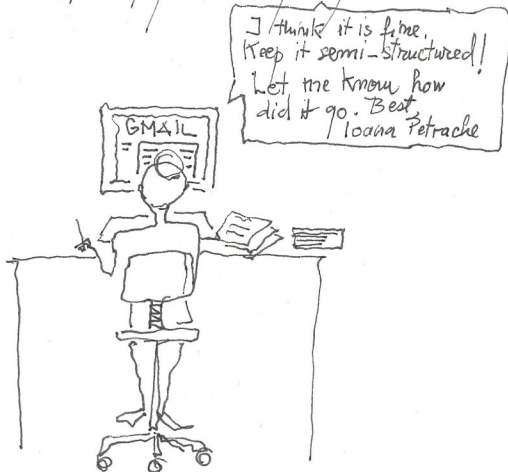 I think it is fine.
Keep it semi-structured!
Let me know how
did it go. Best,
Ioana Petrache
GMAIL